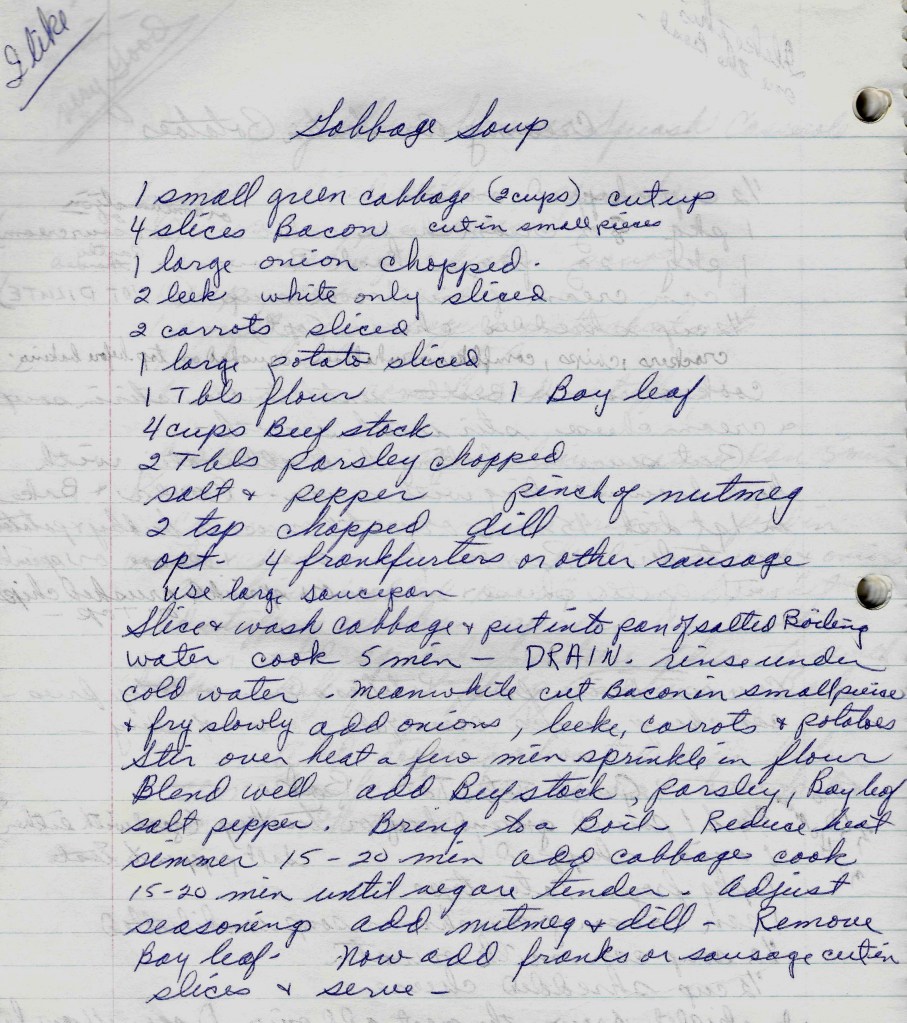 I like
Gabbage Soup
1 small green cabbage (2 cups) cut up
4 slices Bacon cut in small pieces
1 large onion chopped.
2 leek white only sliced
2 carrots sliced
1 large potato sliced
1 Tbls flour 1 Bay leaf
4 cups Beef stock
2 Tbls parsley chopped
salt & pepper pinch of nutmeg
2 tsp chopped dill
opt- 4 frankfurters or other sausage
use large saucepan
Slice & wash cabbage & put into pan of salted Boiling
water cook 5 min — DRAIN. rinse under
cold water. Meanwhile cut Bacon in small piece
& fry slowly add onions, leeks, carrots & potatoes
Stir over heat a few min sprinkle in flour
Blend well add Beef stock, parsley, Bay leaf
salt pepper. Bring to a Boil Reduce heat
simmer 15-20 min add cabbage cook
15-20 min until veg are tender. Adjust
seasoning add nutmeg & dill - Remove
Bay leaf- Now add franks or sausage cut in
slices & serve —